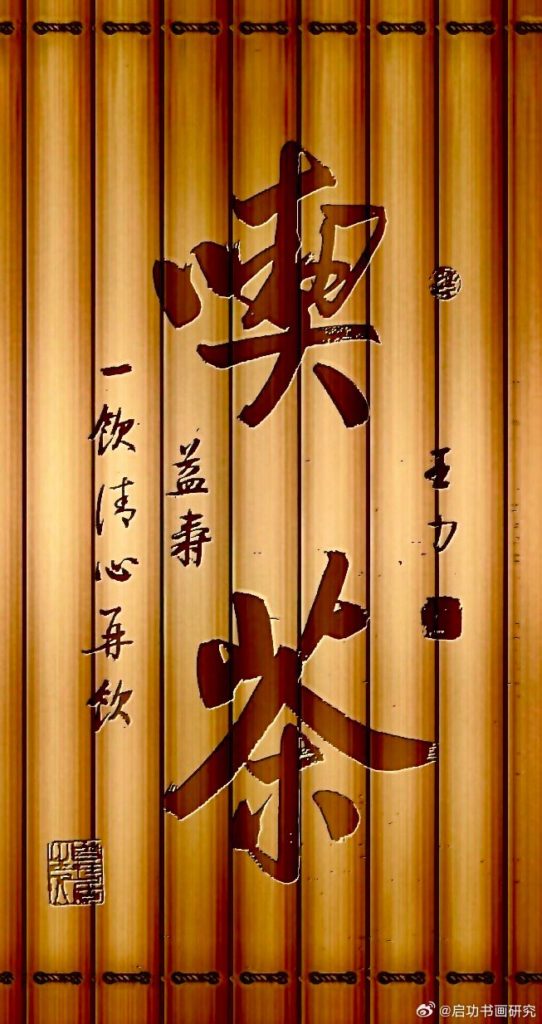 喫茶
一飲清心再飲
益壽
王力
@启功书画研究